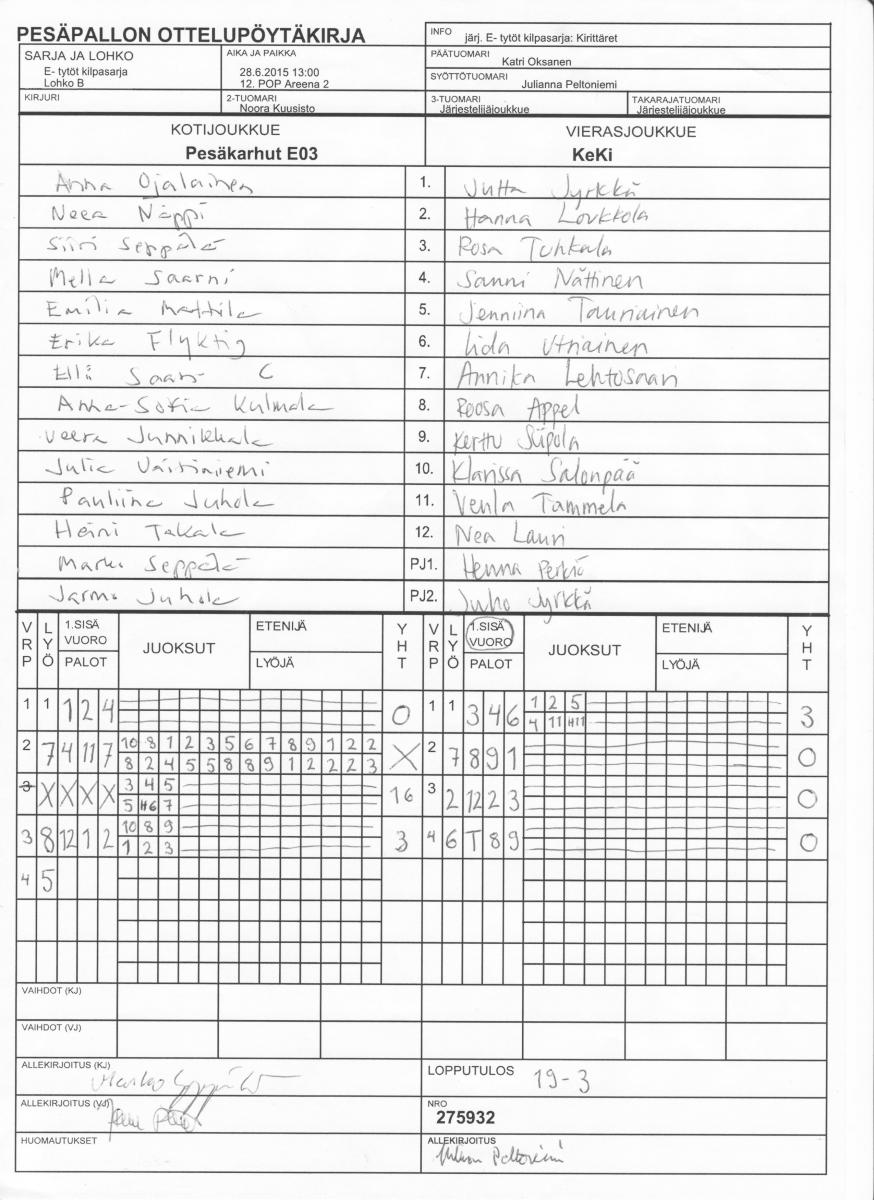 PESÄPALLON OTTELUPÖYTÄKIRJA
INFO järj. E- tytöt kilpasarja: Kirittäret
SARJA JA LOHKO
E- tytöt kilpasarja
Lohko B
AIKA JA PAIKKA
28.6.2015 13:00
12. POP Areena 2
PÄÄTUOMARI
Katri Oksanen
SYÖTTÖTUOMARI
Julianna Peltoniemi
KIRJURI
2-TUOMARI
Noora Kuusisto
3-TUOMARI
Järjestelijäjoukkue
TAKARAJATUOMARI
Järjestelijäjoukkue
KOTIJOUKKUE VIERASJOUKKUE
Pesäkarhut E03 KeKi
Anna Ojalainen 1. Jutta Jyrkkä
Neea Näppi 2. Hanna Loukkola
Siiri Seppälä 3. Rosa Tuhkala
Mella Saarni 4. Sanni Nättinen
Emilia Mattila 5. Jenniina Tauriainen
Erika Flyktig 6. Iida Utriainen
Elli Saari C 7. Annika Lehtosaari
Anna-Sofia Kulmala 8. Roosa Appel
Veera Junnikkala 9. Kerttu Siipola
Julia Väitiniemi 10. Klarissa Salonpää
Pauliina Juhola 11. Venla Tammela
Heini Takala 12. Nea Lauri
Marko Seppälä PJ1. Henna Perkiö
Jarmo Juhola PJ2. Juho Jyrkkä
VRP LYÖ 1.SISÄ VUORO PALOT JUOKSUT ETENIJÄ LYÖJÄ YHT VRP LYÖ 1.SISÄ VUORO PALOT JUOKSUT ETENIJÄ LYÖJÄ YHT
1 1 1 2 4 0 1 1 3 4 6 1 2 5 3
4 11 H11
2 7 4 11 7 10 8 1 2 3 5 6 7 8 9 1 2 2 X 2 7 8 9 1 0
8 2 4 5 5 8 8 9 1 2 2 2 3
3 X X X X 3 4 5 16 3 2 12 2 3 0
5 H6 7
3 8 12 1 2 10 8 9 3 4 6 T 8 9 0
1 2 3
4 5
VAIHDOT (KJ)
VAIHDOT (VJ)
ALLEKIRJOITUS (KJ) Marko Seppälä
LOPPUTULOS 19-3
ALLEKIRJOITUS (VJ)
NRO
275932
HUOMAUTUKSET
ALLEKIRJOITUS
Peltoniemi